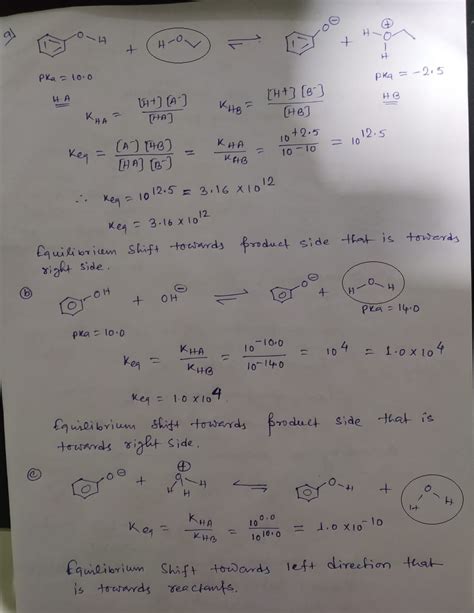 a)
O-H + H-O ⇌ O⊖ + H-O⊕-H
pKa = 10.0 pKa = -2.5
HA HB
K_HA = [H+][A-] / [HA] K_HB = [H+][B-] / [HB]
Keq = [A-][HB] / [HA][B-] = K_HA / K_HB = 10^+2.5 / 10^-10 = 10^12.5
∴ Keq = 10^12.5 = 3.16 × 10^12
Keq = 3.16 × 10^12
Equilibrium shift towards product side that is towards
right side.
(b) OH + OH⊖ ⇌ O⊖ + H-O-H
pKa = 10.0 pKa = 14.0
Keq = K_HA / K_HB = 10^-10.0 / 10^-14.0 = 10^4 = 1.0 × 10^4
Keq = 1.0 × 10^4.
Equilibrium shift towards product side that is
towards right side.
(c) O⊖ + H-O⊕-H ⇌ O-H + H-O-H
Keq = K_HA / K_HB = 10^0.0 / 10^10.0 = 1.0 × 10^-10
Equilibrium shift towards left direction that
is towards reactants.